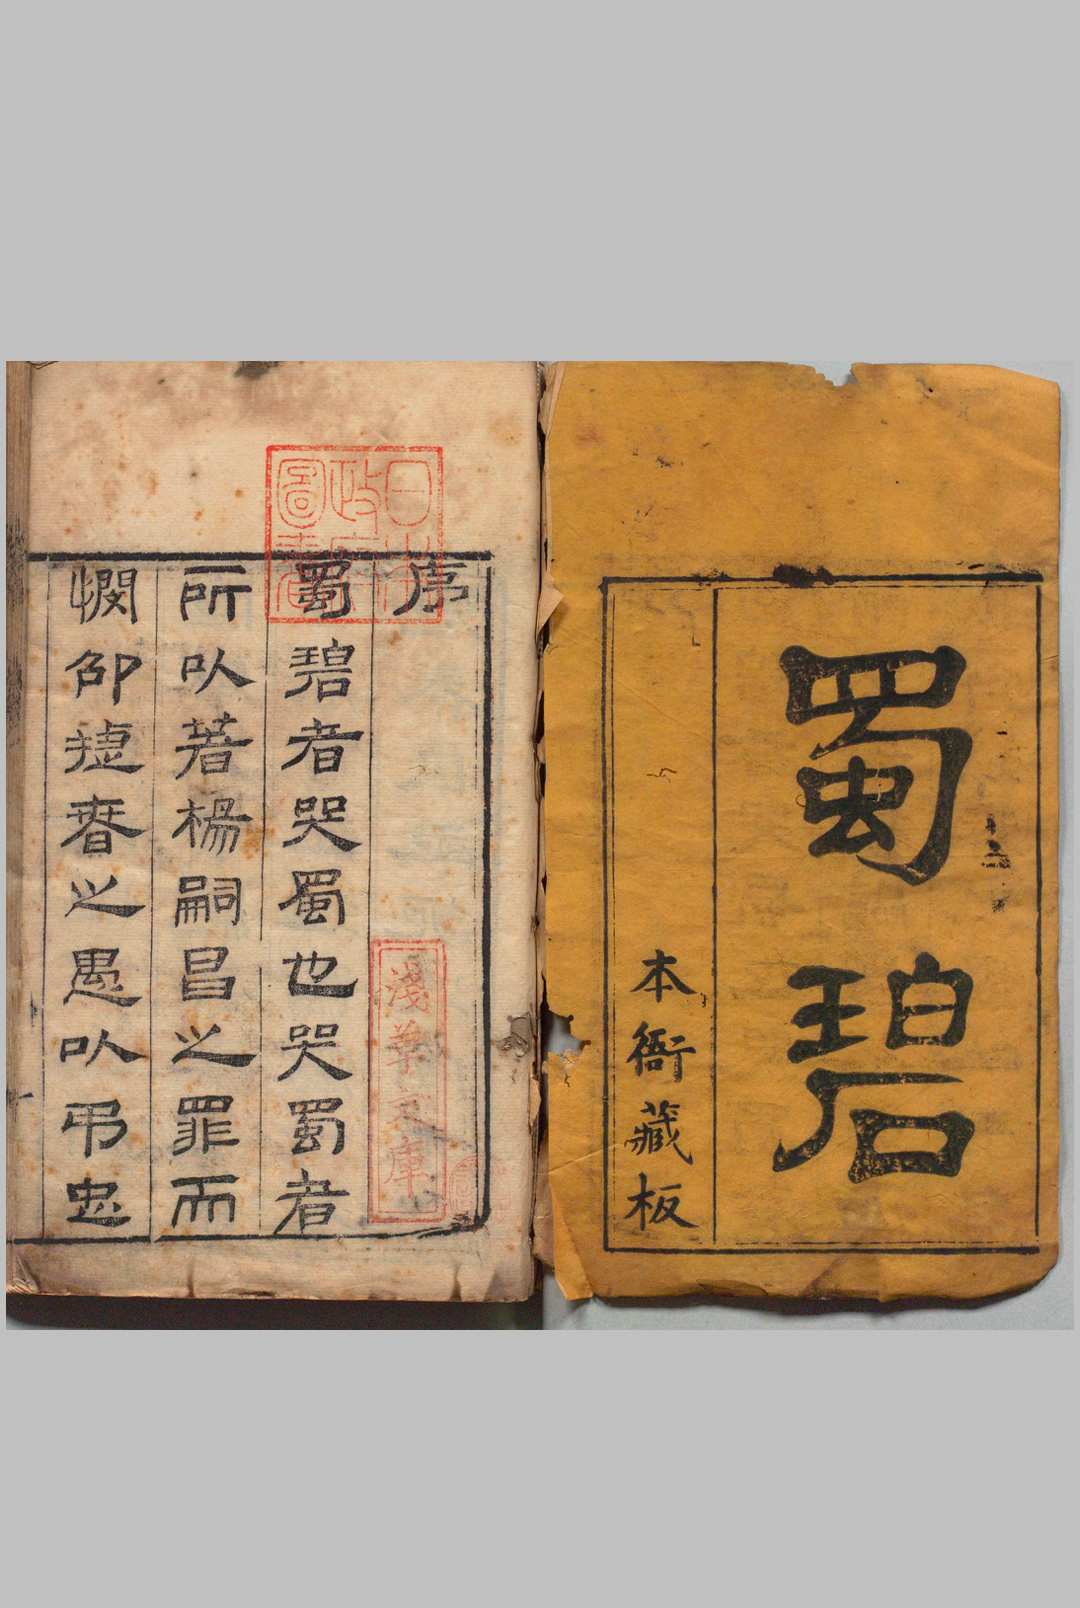 蜀碧
本衙藏板
序
蜀碧者哭蜀也哭蜀者
所㠯著楊嗣昌之罪而
憫邵捷春之愚㠯弔忠
日本政府圖書
淺草文庫